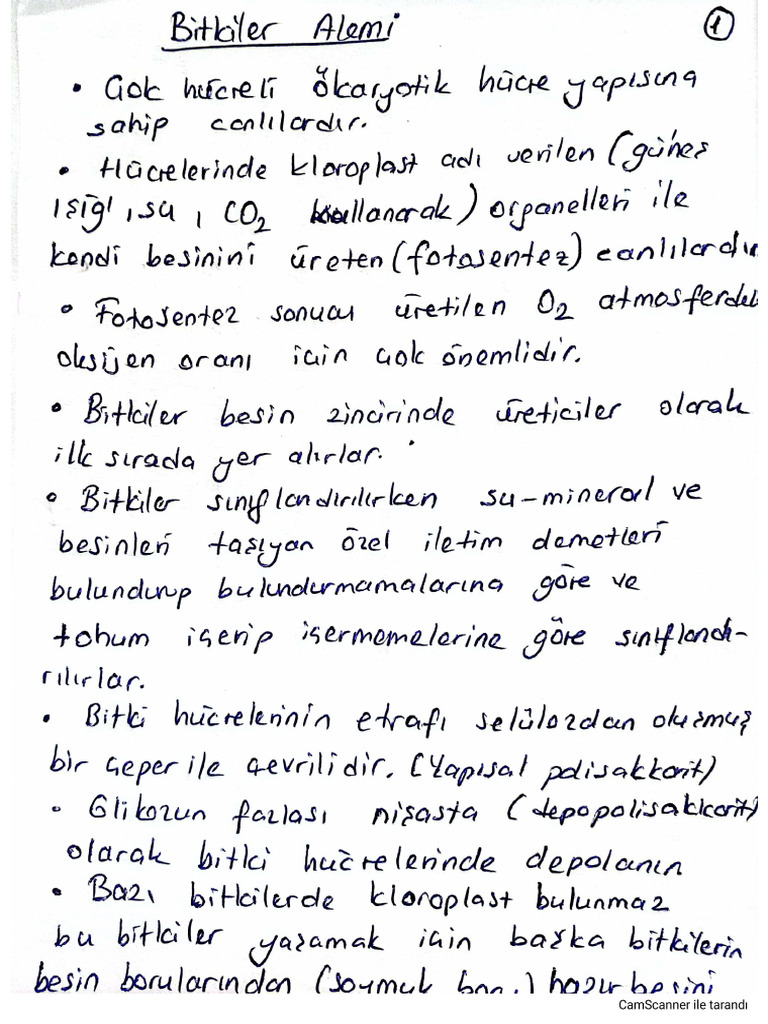 Bitkiler Alemi
1
• Çok hücreli ökaryotik hücre yapısına
sahip canlılardır.
• Hücrelerinde kloroplast adı verilen (güneş
ışığı, su, CO2 kullanarak) organelleri ile
kendi besinini üreten (fotosentez) canlılardır
• Fotosentez sonucu üretilen O2 atmosferdeki
oksijen oranı için çok önemlidir.
• Bitkiler besin zincirinde üreticiler olarak
ilk sırada yer alırlar.
• Bitkiler sınıflandırılırken su-mineral ve
besinleri taşıyan özel iletim demetleri
bulundurup bulundurmamalarına göre ve
tohum içerip içermemelerine göre sınıfland-
rılırlar.
• Bitki hücrelerinin etrafı selülozdan oluşmuş
bir çeper ile çevrilidir. (Yapısal polisakkarit)
• Glikozun fazlası nişasta (depopolisakkarit)
olarak bitki hücrelerinde depolanır
• Bazı bitkilerde kloroplast bulunmaz
bu bitkiler yaşamak için başka bitkilerin
besin borularından (soymuk bor.) hazır besini
CamScanner ile tarandı